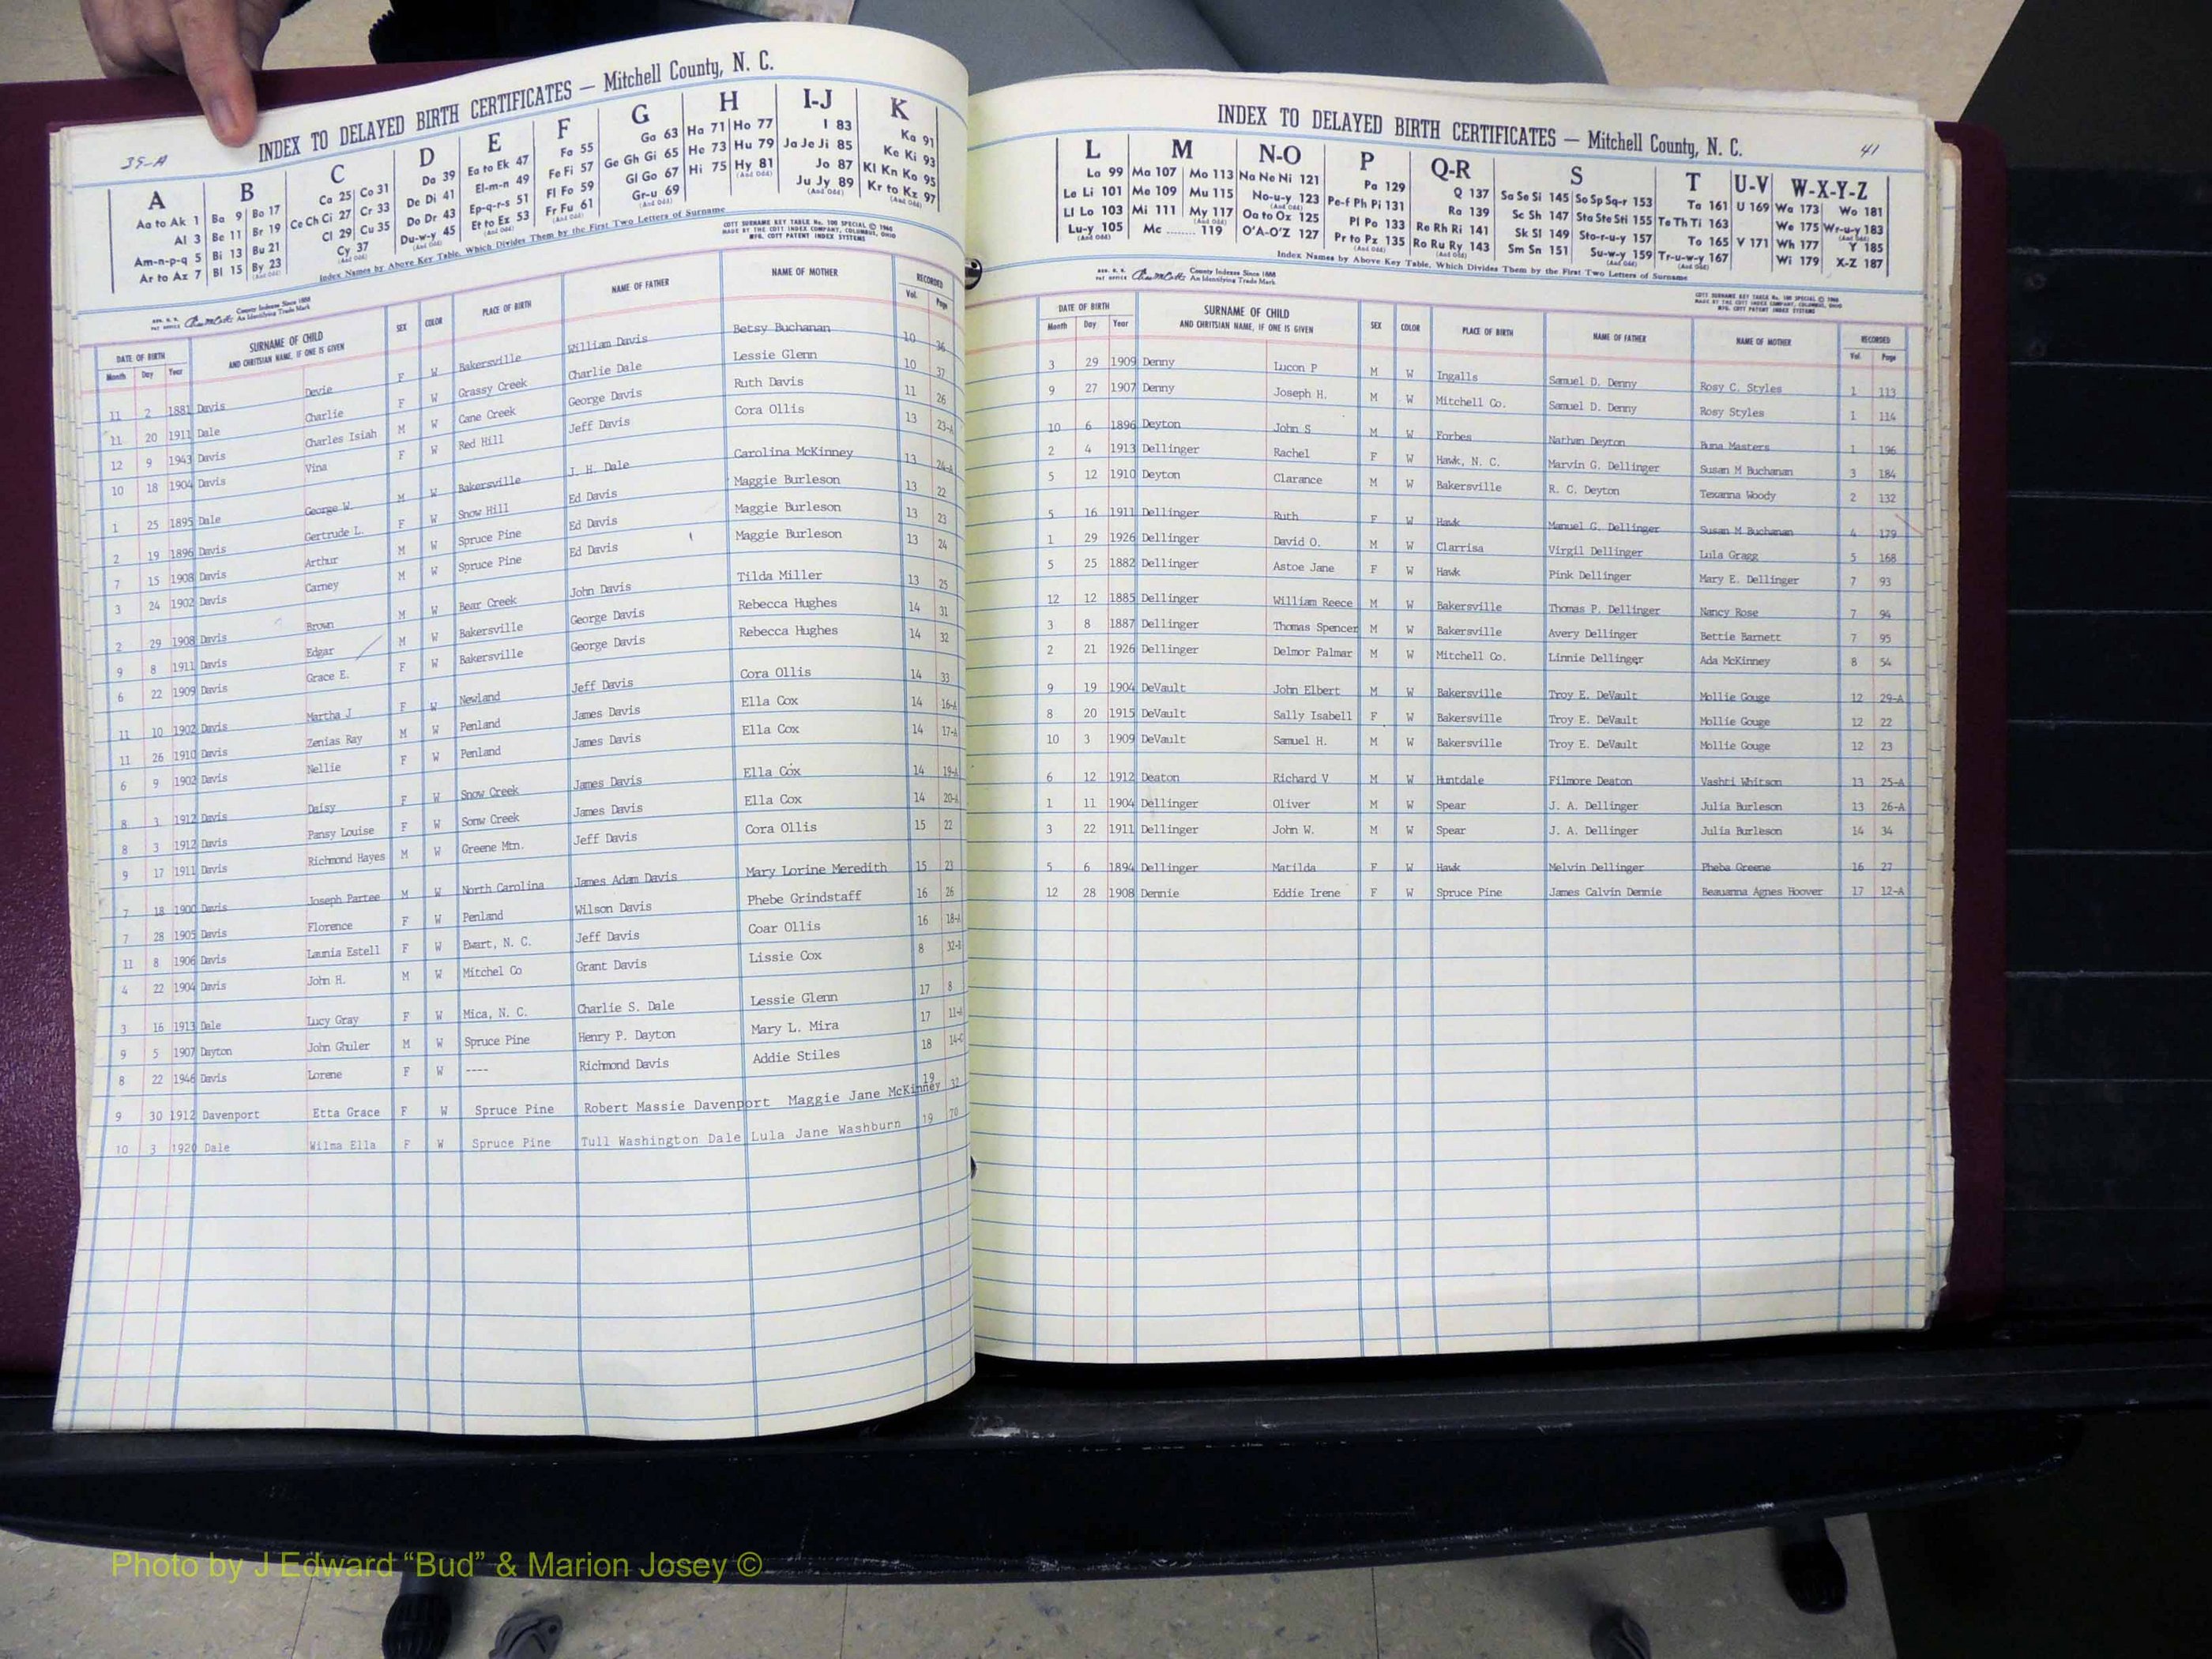 35-A
INDEX TO DELAYED BIRTH CERTIFICATES — Mitchell County, N. C.
A B C D E F G H I-J K
Aa to Ak 1 Ba 9 Bo 17 Ca 25 Co 31 Da 39 Ea to Ek 47 Fa 55 Ga 63 Ha 71 Ho 77 I 83 Ka 91
Al 3 Be 11 Br 19 Ce Ch Ci 27 Cr 33 De Di 41 El-m-n 49 Fe Fi 57 Ge Gh Gi 65 He 73 Hu 79 Ja Je Ji 85 Ke Ki 93
Am-n-p-q 5 Bi 13 Bu 21 Cl 29 Cu 35 Do Dr 43 Ep-q-r-s 51 Fl Fo 59 Gl Go 67 Hi 75 Hy 81 Jo 87 Kl Kn Ko 95
Ar to Az 7 Bl 15 By 23 Cy 37 Du-w-y 45 Et to Ez 53 Fr Fu 61 Gr-u 69 (And Odd) Ju Jy 89 Kr to Kz 97
Index Names by Above Key Table, Which Divides Them by the First Two Letters of Surname
COTT SURNAME KEY TABLE No. 100 SPECIAL © 1960
MADE BY THE COTT INDEX COMPANY, COLUMBUS, OHIO
MFG. COTT PATENT INDEX SYSTEMS
County Indexes Since 1888
An Identifying Trade Mark
DATE OF BIRTH SURNAME OF CHILD SEX COLOR PLACE OF BIRTH NAME OF FATHER NAME OF MOTHER RECORDED
Month Day Year AND CHRITSIAN NAME, IF ONE IS GIVEN Vol. Page
11 2 1881 Davis Devie F W Bakersville William Davis Betsy Buchanan 10 36
11 20 1911 Dale Charlie F W Grassy Creek Charlie Dale Lessie Glenn 10 37
12 9 1943 Davis Charles Isiah M W Cane Creek George Davis Ruth Davis 11 26
10 18 1904 Davis Vina F W Red Hill Jeff Davis Cora Ollis 13 23-A
1 25 1895 Dale George W. M W Bakersville J. H. Dale Carolina McKinney 13 24-A
2 19 1896 Davis Gertrude L. F W Snow Hill Ed Davis Maggie Burleson 13 22
7 15 1908 Davis Arthur M W Spruce Pine Ed Davis Maggie Burleson 13 23
3 24 1902 Davis Carney M W Spruce Pine Ed Davis Maggie Burleson 13 24
2 29 1908 Davis Brown M W Bear Creek John Davis Tilda Miller 13 25
9 8 1911 Davis Edgar M W Bakersville George Davis Rebecca Hughes 14 31
6 22 1909 Davis Grace E. F W Bakersville George Davis Rebecca Hughes 14 32
11 10 1902 Davis Martha J F W Newland Jeff Davis Cora Ollis 14 33
11 26 1910 Davis Zenias Ray M W Penland James Davis Ella Cox 14 16-A
6 9 1902 Davis Nellie F W Penland James Davis Ella Cox 14 17-A
8 3 1912 Davis Daisy F W Snow Creek James Davis Ella Cox 14 19-A
8 3 1912 Davis Pansy Louise F W Sonw Creek James Davis Ella Cox 14 20-A
9 17 1911 Davis Richmond Hayes M W Greene Mtn. Jeff Davis Cora Ollis 15 22
7 18 1900 Davis Joseph Partee M W North Carolina James Adam Davis Mary Lorine Meredith 15 23
7 28 1905 Davis Florence F W Penland Wilson Davis Phebe Grindstaff 16 26
11 8 1906 Davis Launia Estell F W Ewart, N. C. Jeff Davis Coar Ollis 16 18-A
4 22 1904 Davis John H. M W Mitchel Co Grant Davis Lissie Cox 8 32-B
3 16 1913 Dale Lucy Gray F W Mica, N. C. Charlie S. Dale Lessie Glenn 17 8
9 5 1907 Dayton John Ghuler M W Spruce Pine Henry P. Dayton Mary L. Mira 17 11-A
8 22 1946 Davis Lorene F W ---- Richmond Davis Addie Stiles 18 14-C
9 30 1912 Davenport Etta Grace F W Spruce Pine Robert Massie Davenport Maggie Jane McKinney 19 32
10 3 1920 Dale Wilma Ella F W Spruce Pine Tull Washington Dale Lula Jane Washburn 19 70
41
INDEX TO DELAYED BIRTH CERTIFICATES — Mitchell County, N. C.
L M N-O P Q-R S T U-V W-X-Y-Z
La 99 Ma 107 Mo 113 Na Ne Ni 121 Pa 129 Q 137 Sa Se Si 145 So Sp Sq-r 153 Ta 161 U 169 Wa 173 Wo 181
Le Li 101 Me 109 Mu 115 No-u-y 123 Pe-f Ph Pi 131 Ra 139 Sc Sh 147 Sta Ste Sti 155 Te Th Ti 163 We 175 Wr-u-y 183
Ll Lo 103 Mi 111 My 117 Oa to Oz 125 Pl Po 133 Re Rh Ri 141 Sk Sl 149 Sto-r-u-y 157 To 165 V 171 Wh 177 Y 185
Lu-y 105 Mc ........ 119 O'A-O'Z 127 Pr to Pz 135 Ro Ru Ry 143 Sm Sn 151 Su-w-y 159 Tr-u-w-y 167 Wi 179 X-Z 187
Index Names by Above Key Table, Which Divides Them by the First Two Letters of Surname
County Indexes Since 1888
An Identifying Trade Mark
COTT SURNAME KEY TABLE No. 100 SPECIAL © 1960
MADE BY THE COTT INDEX COMPANY, COLUMBUS, OHIO
MFG. COTT PATENT INDEX SYSTEMS
DATE OF BIRTH SURNAME OF CHILD SEX COLOR PLACE OF BIRTH NAME OF FATHER NAME OF MOTHER RECORDED
Month Day Year AND CHRITSIAN NAME, IF ONE IS GIVEN Vol. Page
3 29 1909 Denny Lucon P M W Ingalls Samuel D. Denny Rosy C. Styles 1 113
9 27 1907 Denny Joseph H. M W Mitchell Co. Samuel D. Denny Rosy Styles 1 114
10 6 1896 Deyton John S M W Forbes Nathan Deyton Buna Masters 1 196
2 4 1913 Dellinger Rachel F W Hawk, N. C. Marvin G. Dellinger Susan M Buchanan 3 184
5 12 1910 Deyton Clarance M W Bakersville R. C. Deyton Texanna Woody 2 132
5 16 1911 Dellinger Ruth F W Hawk Manuel G. Dellinger Susan M Buchanan 4 179
1 29 1926 Dellinger David O. M W Clarrisa Virgil Dellinger Lula Gragg 5 168
5 25 1882 Dellinger Astoe Jane F W Hawk Pink Dellinger Mary E. Dellinger 7 93
12 12 1885 Dellinger William Reece M W Bakersville Thomas P. Dellinger Nancy Rose 7 94
3 8 1887 Dellinger Thomas Spencer M W Bakersville Avery Dellinger Bettie Barnett 7 95
2 21 1926 Dellinger Delmor Palmar M W Mitchell Co. Linnie Dellinger Ada McKinney 8 54
9 19 1904 DeVault John Elbert M W Bakersville Troy E. DeVault Mollie Gouge 12 29-A
8 20 1915 DeVault Sally Isabell F W Bakersville Troy E. DeVault Mollie Gouge 12 22
10 3 1909 DeVault Samuel H. M W Bakersville Troy E. DeVault Mollie Gouge 12 23
6 12 1912 Deaton Richard V M W Huntdale Filmore Deaton Vashti Whitson 13 25-A
1 11 1904 Dellinger Oliver M W Spear J. A. Dellinger Julia Burleson 13 26-A
3 22 1911 Dellinger John W. M W Spear J. A. Dellinger Julia Burleson 14 34
5 6 1894 Dellinger Matilda F W Hawk Melvin Dellinger Pheba Greene 16 27
12 28 1908 Dennie Eddie Irene F W Spruce Pine James Calvin Dennie Beauanna Agnes Hoover 17 12-A
Photo by J Edward “Bud” & Marion Josey ©